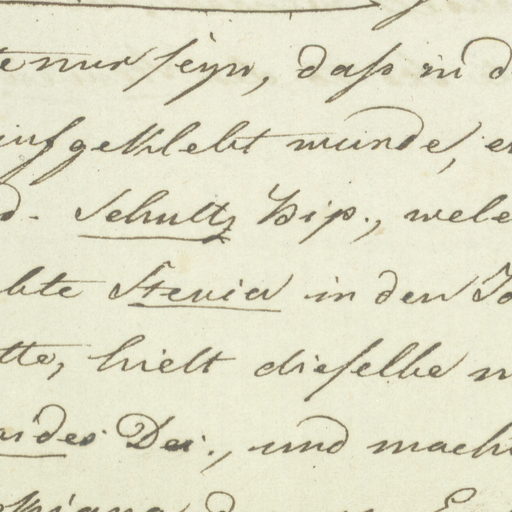 nur seyn, daß in d
aufgeklebt wurde, e
d. Schultz Bip., welc
bte Stevia in den Ja
tte, hielt dieselbe n
oides Dec., und mach